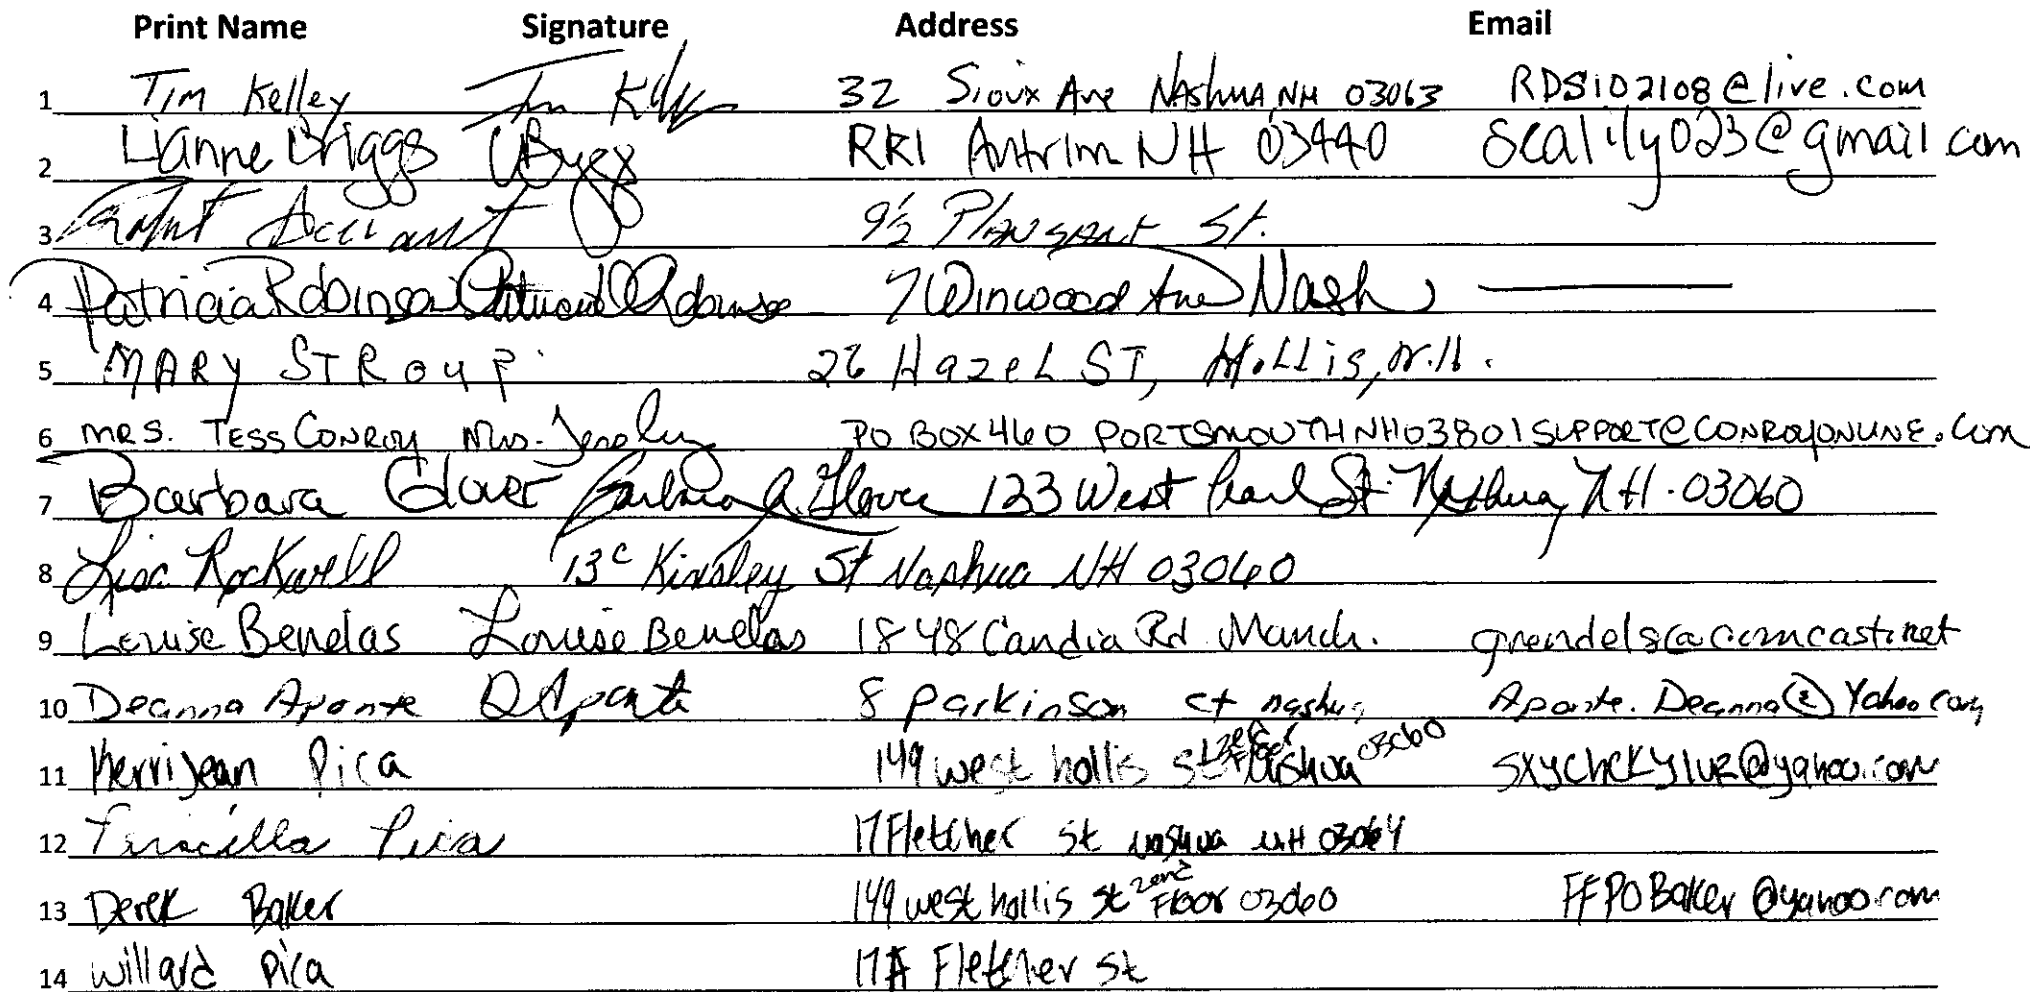 Print Name Signature Address Email
1 Tim Kelley Tim Kelley 32 Sioux Ave Nashua, NH 03063 RDS102108@live.com
2 Lianne Briggs LBriggs RR1 Antrim NH 03440 Sealily023@gmail.com
3 9½ Pleasant St.
4 Patricia Robinson Patricia Robinson 7 Winwood Ave Nash
5 MARY STROUP 26 Hazel ST, Hollis, N.H.
6 MRS. TESS CONROY Mrs. PO BOX 460 PORTSMOUTH NH 03801 SUPPORT@CONROYONLINE.com
7 Barbara Glover Barbara A. Glover 123 West Pearl St. Nashua, NH. 03060
8 Lisa Rockwell 13C Kinsley St Nashua NH 03060
9 Louise Benelas Louise Benelas 1848 Candia Rd Manch. grendels@comcast.net
10 Deanna Aponte D Aponte 8 Parkinson ct nashua Aponte.Deanna@Yahoo.com
11 Kerrijean Pica 149 west hollis St Nashua 03060 sxychckyluz@yahoo.com
12 Priscilla Pica 17 Fletcher St Nashua NH 03064
13 Derek Baker 149 west hollis St 2end Floor 03060 FFPOBaker@yahoo.com
14 Willard Pica 17A Fletcher St